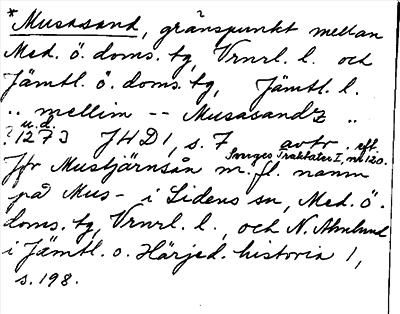 * Musasand, gränspunkt mellan
Med. ö. doms. tg, Vrnrl. l. och
Jämtl. ö. doms. tg, Jämtl. l.
.. mellim -- Musasandz ..
u.d.
? 1273 JHD 1, s. 7 avtr. eft.
Sveriges Traktater I, nr 120.
Jfr Mustjärnsån m. fl. namn
på Mus- i Lidens sn, Med. ö.
doms. tg, Vrnrl. l., och N. Ahnlund
i Jämtl. o. Härjed. historia 1,
s. 198.